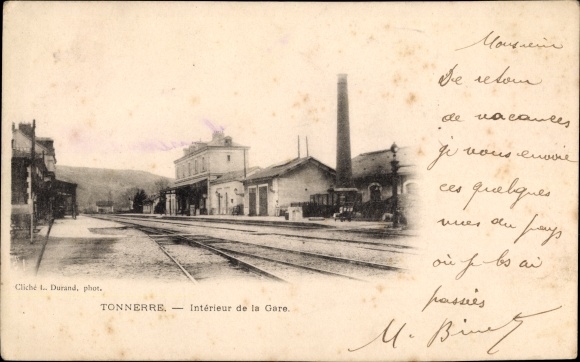 Monsieur
De retour
de vacances
je vous envoie
ces quelques
vues du pays
où je les ai
passées
M. Binet
Cliché L. Durand, phot.
TONNERRE. — Intérieur de la Gare.